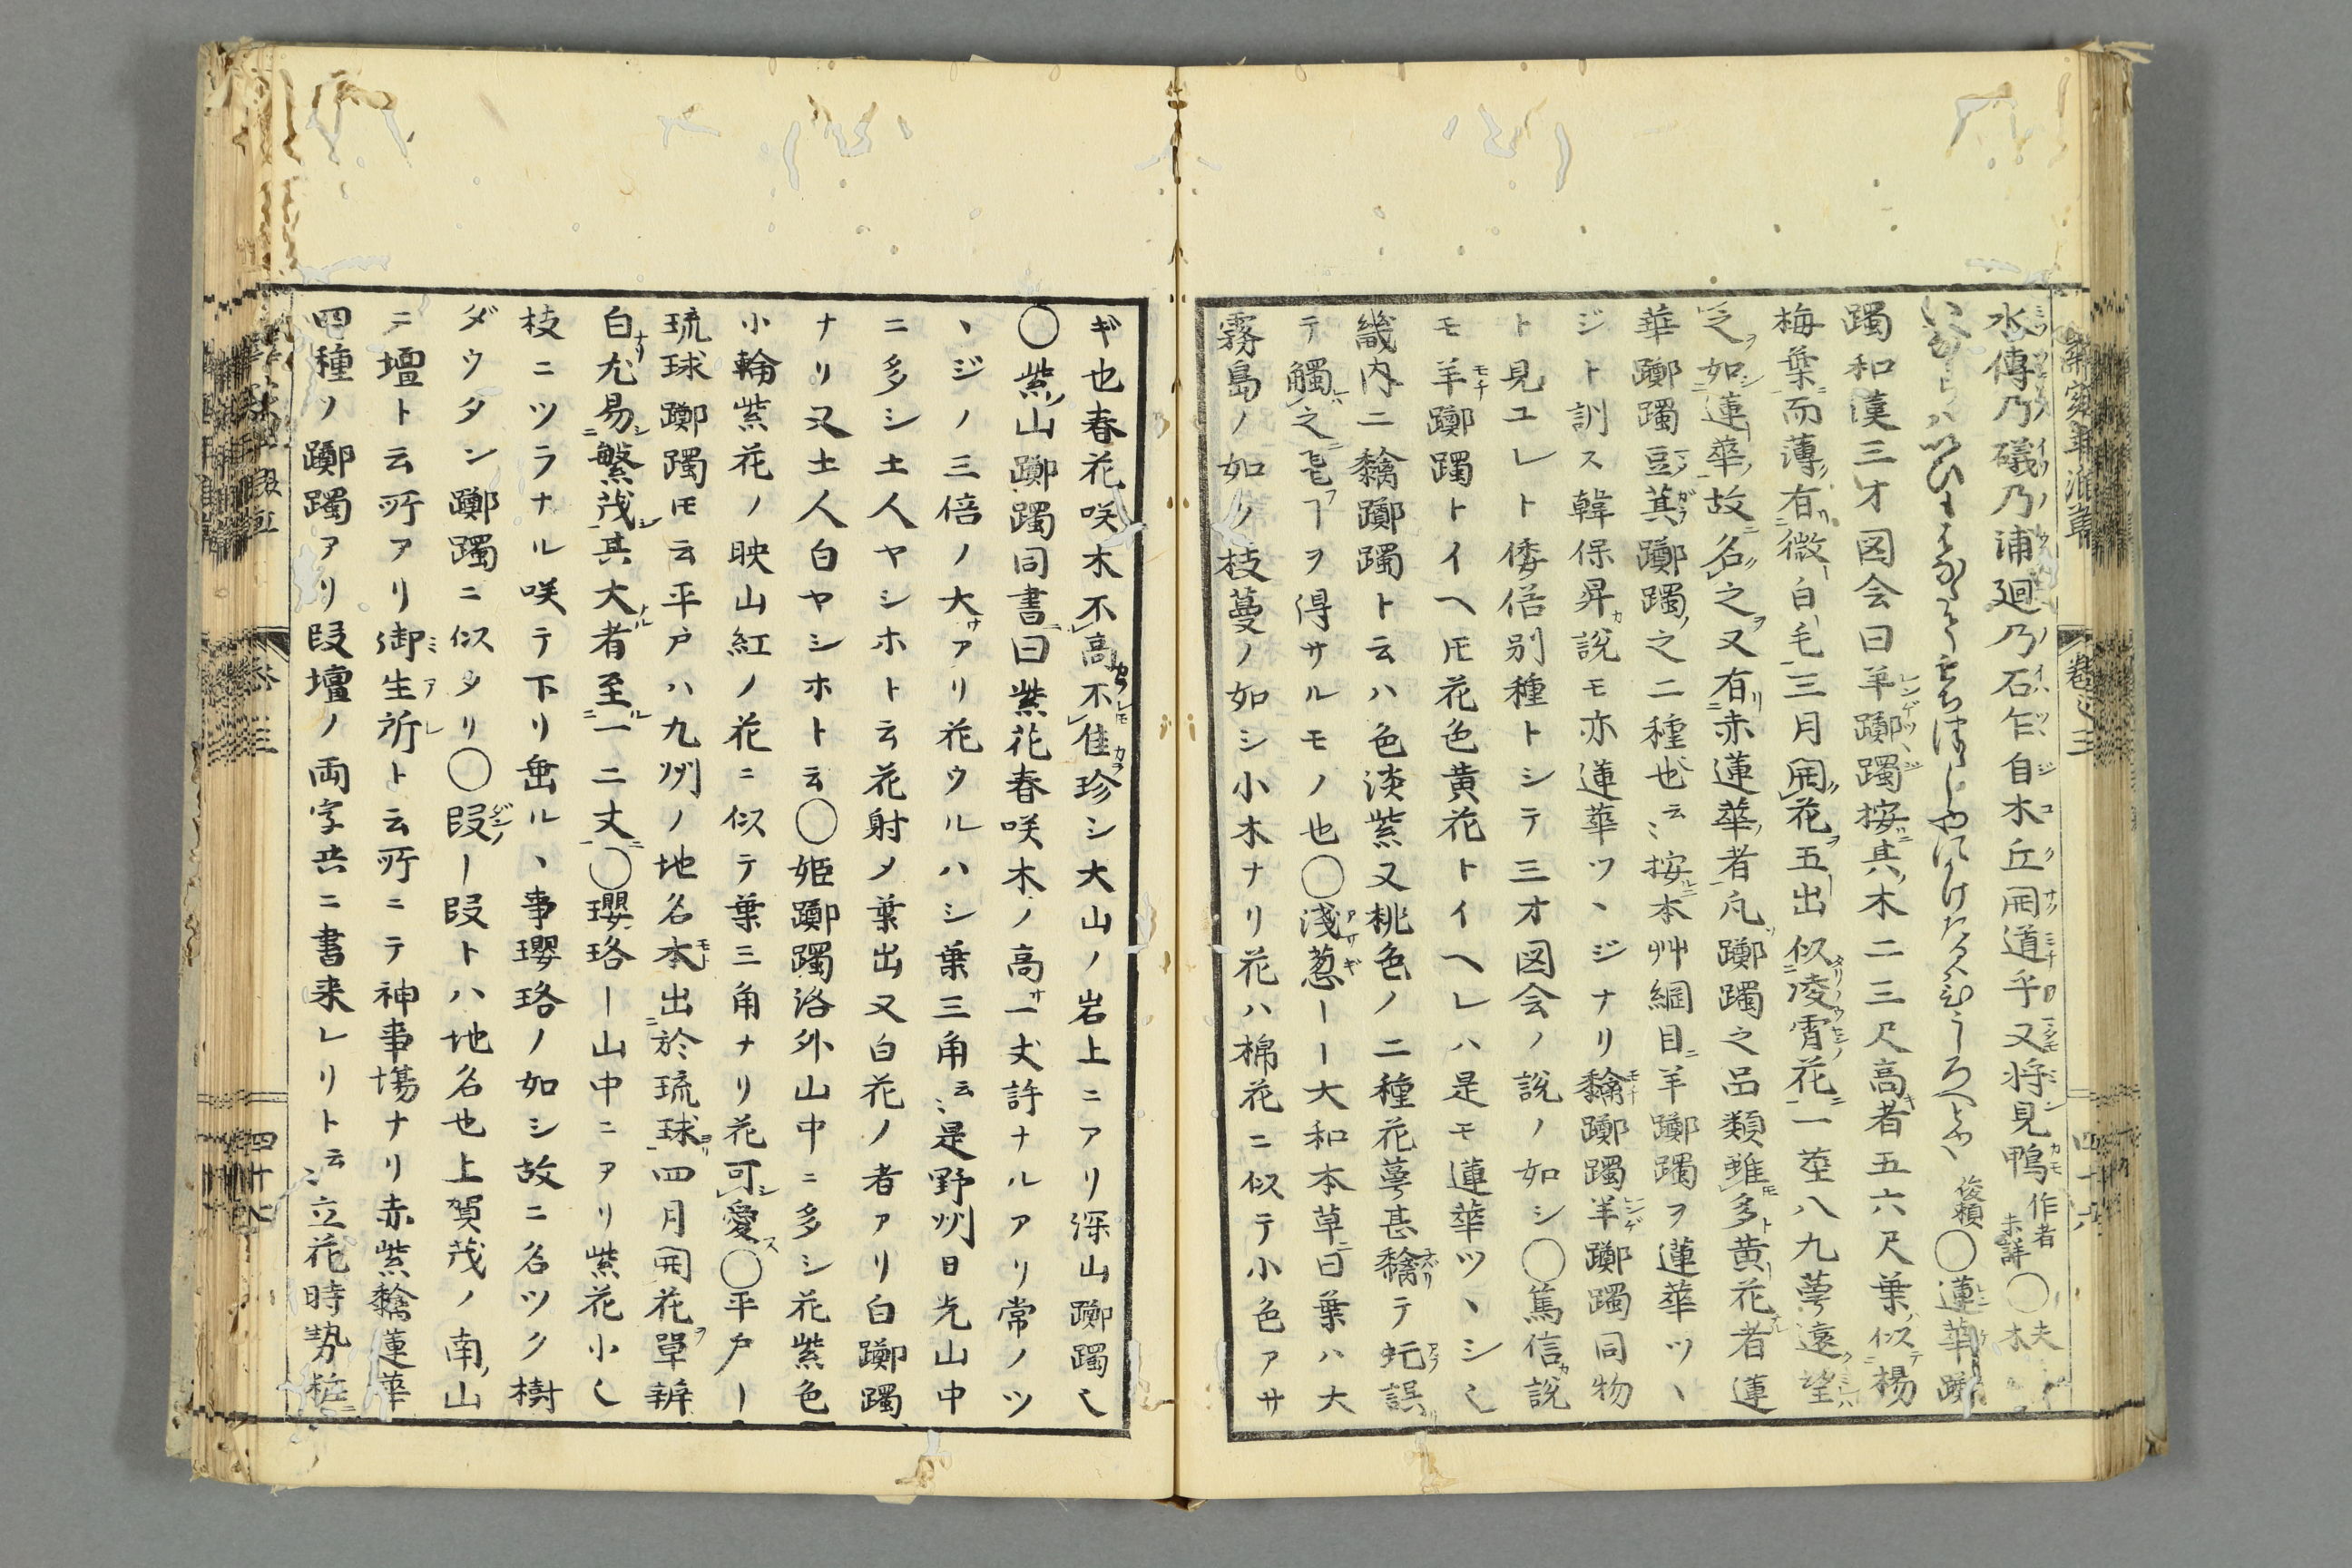 水傳乃礒乃浦廻乃石乍自木丘開道乎又将見鴨 作者未詳 ○夫木
俊頼 ○蓮華躑
躅和漢三才図会曰羊躑躅按其木二三尺高者五六尺葉似楊
梅葉而薄有微白毛三月開花五出似凌霄花一莖八九萼遠望
之如蓮華故名之又有赤蓮華者凡躑躅之品類雖多黄花者蓮
華躑躅豆萁躑躅之二種也云〻按本艸綱目羊躑躅ヲ蓮華ツヽ
ジト訓ス韓保昇説モ亦蓮華ツヽジナリ黐躑躅羊躑躅同物
ト見ユレト倭俗別種トシテ三才図会ノ説ノ如シ○篤信説
モ羊躑躅トイヘ𪜈花色黄花トイヘレハ是モ蓮華ツヽシ也
畿内ニ黐躑躅ト云ハ色淡紫又桃色ノ二種花萼甚黐テ虻誤
テ觸之𠀋ヿヲ得サルモノ也○淺葱ーー大和本草曰葉ハ大
霧島ノ如ク枝蔓ノ如シ小木ナリ花ハ棉花ニ似テ小色アサ
卷之三
四十六
ギ也春花咲木不高不佳珍シ大山ノ岩上ニアリ深山躑躅也
○紫山躑躅同書曰紫花春咲木ノ高一丈許ナルアリ常ノツ
ヽジノ三倍ノ大アリ花ウルハシ葉三角云〻是野州日光山中
ニ多シ土人ヤシホト云花射メ葉出又白花ノ者アリ白躑躅
ナリ又土人白ヤシホト云○姫躑躅洛外山中ニ多シ花紫色
小輪紫花ノ映山紅ノ花ニ似テ葉三角ナリ花可愛○平戸ー
琉球躑躅𪜈云平戸ハ九州ノ地名本出於琉球四月開花單瓣
白尤易繁茂其大者至一二丈○瓔珞ー山中ニアリ紫花小也
枝ニツラナル咲テ下リ垂ルヽ事瓔珞ノ如シ故ニ名ツク樹
ダウタン躑躅ニ似タリ○段ー段トハ地名也上賀茂ノ南山
ニ壇ト云所アリ御生所ト云所ニテ神事場ナリ赤紫黐蓮華
四種ノ躑躅アリ段壇ノ両字共ニ書来レリト云〻立花時勢粧
三
四十六